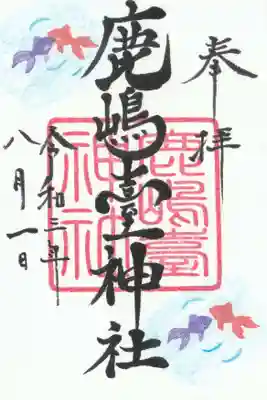 奉拝
鹿嶋臺神社
鹿嶋臺
神社
令和三年
八月一日